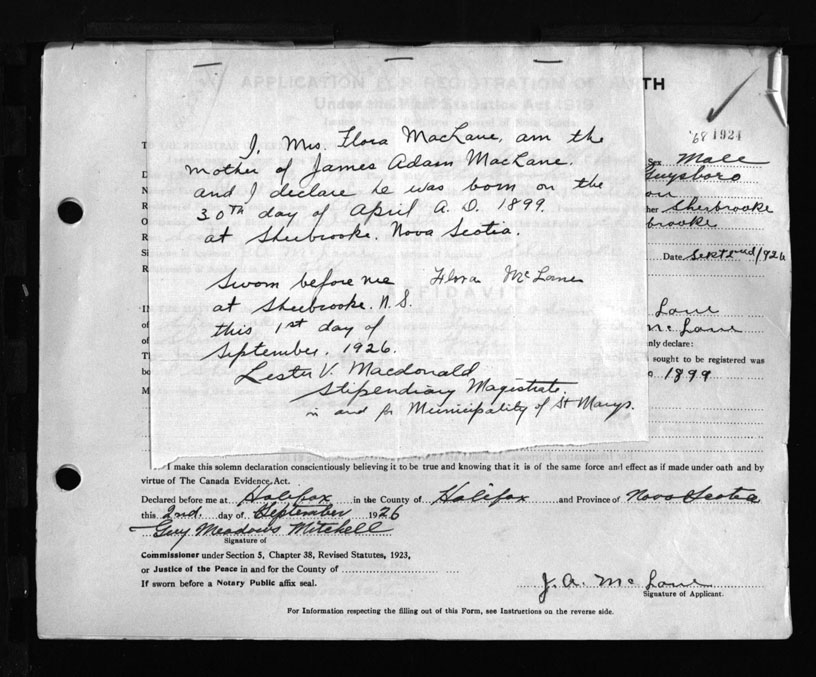 APPLICATION FOR REGISTRATION OF BIRTH
'68 1924
I, Mrs. Flora MacLane, am the
mother of James Adam MacLane.
and I declare he was born on the
30TH day of April A. D. 1899.
at Sherbrooke. Nova Scotia.
Sworn before me Flora McLane
at Sherbrooke. N. S.
this 1st day of
September. 1926.
Lester V. Macdonald
Stipendiary Magistrate.
in and for Municipality of St Marys.
Sex Male
Guysboro
Sherbrooke
brooke
Date Sept 2nd/1926
Lane
McLane
nly declare:
sought to be registered was
1899
I make this solemn declaration conscientiously believing it to be true and knowing that it is of the same force and effect as if made under oath and by
virtue of The Canada Evidence Act.
Declared before me at Halifax in the County of Halifax and Province of Nova Scotia
this 2nd day of September 1926
Guy Meadows Mitchell
Signature of
Commissioner under Section 5, Chapter 38, Revised Statutes, 1923,
or Justice of the Peace in and for the County of
If sworn before a Notary Public affix seal.
J. A. McLane
Signature of Applicant.
For Information respecting the filling out of this Form, see Instructions on the reverse side.